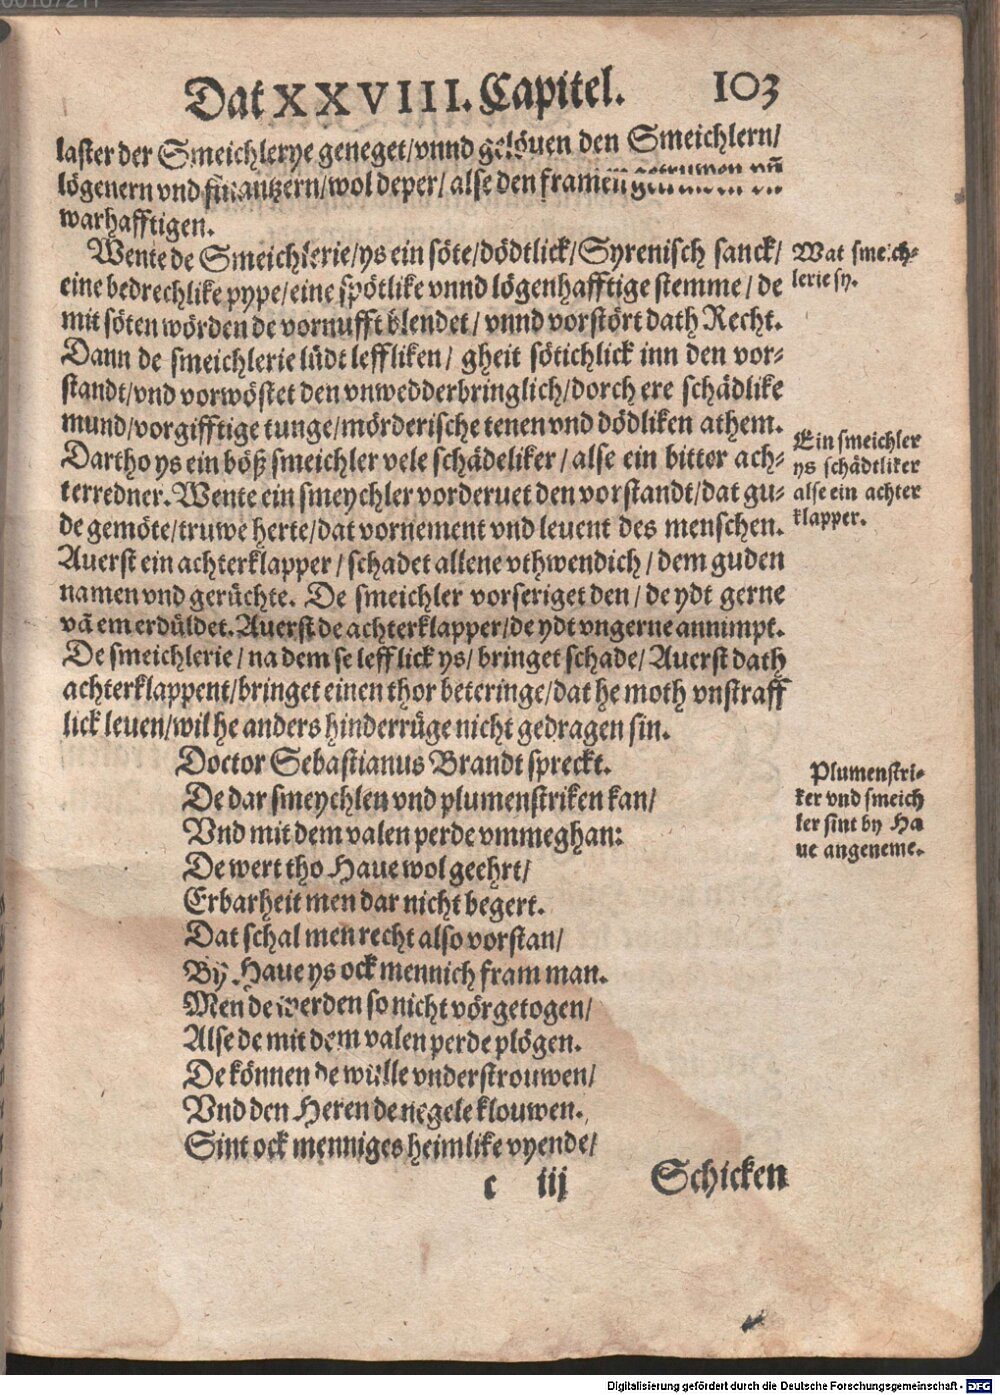 Dat XXVIII. Capitel. 103
laster der Smeichlerye geneget/vnnd gelöuen den Smeichlern/
lögenern vnd finantzern/wol deper/alse den framen getruwen vñ
warhafftigen.
Wente de Smeichlerie/ys ein söte/dödtlick/Syrenisch sanck/
eine bedrechlike pype/eine spötlike vnnd lögenhafftige stemme/de
mit söten wörden de vornufft blendet/vnnd vorstört dath Recht.
Dann de smeichlerie lüdt leffliken/ gheit sötichlick inn den vor-
standt/vnd vorwöstet den vnwedderbringlich/dorch ere schädlike
mund/vorgifftige tunge/mörderische tenen vnd dödliken athem.
Dartho ys ein böß smeichler vele schädeliker/alse ein bitter ach-
terredner. Wente ein smeychler vorderuet den vorstandt/dat gu-
de gemöte/truwe herte/dat vornement vnd leuent des menschen.
Auerst ein achterklapper/schadet allene vthwendich/dem guden
namen vnd gerüchte. De smeichler vorseriget den/de ydt gerne
vā em erdüldet. Auerst de achterklapper/de ydt vngerne annimpt.
De smeichlerie/na dem se lefflick ys/bringet schade/Auerst dath
achterklappent/bringet einen thor beteringe/dat he moth vnstraff
lick leuen/wil he anders hinderrüge nicht gedragen sin.
Wat smeich-
lerie sy.
Ein smeichler
ys schädtliker
alse ein achter
klapper.
Doctor Sebastianus Brandt spreckt.
De dar smeychlen vnd plumenstriken kan/
Vnd mit dem valen perde vmmeghan:
De wert tho Haue wol geehrt/
Erbarheit men dar nicht begert.
Dat schal men recht also vorstan/
By Haue ys ock mennich fram man.
Men de werden so nicht vörgetogen/
Alse de mit dem valen perde plögen.
De können de wülle vnderstrouwen/
Vnd den Heren de negele klouwen.
Sint ock menniges heimlike vyende/
Plumenstri-
ker vnd smeich
ler sint by Ha
ue angeneme.
c iij Schicken
Digitalisierung gefördert durch die Deutsche Forschungsgemeinschaft - DFG